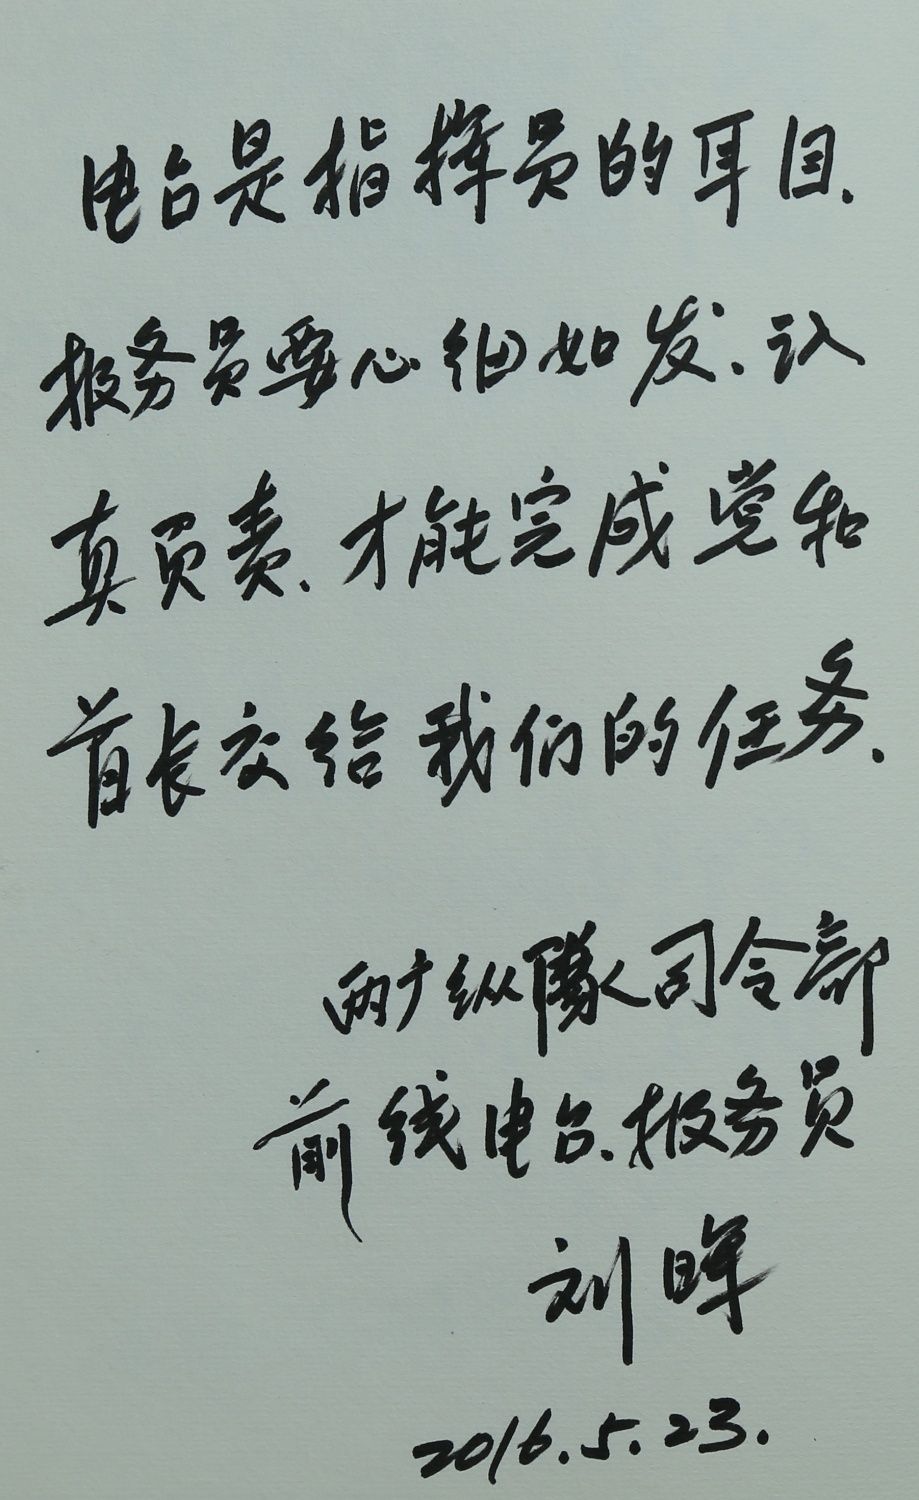 电台是指挥员的耳目.
报务员要心细如发、认
真负责、才能完成党和
首长交给我们的任务.
两广纵队司令部
前线电台、报务员
刘晖
2016.5.23.